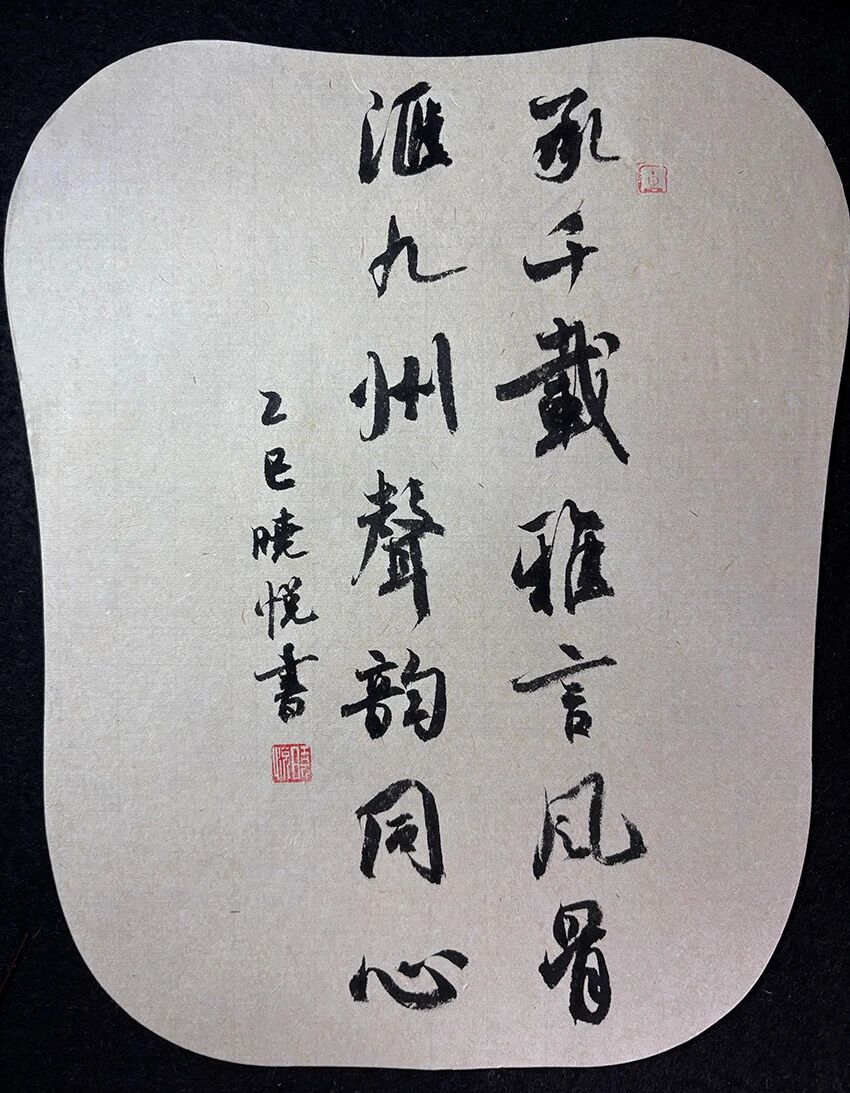 承千載雅言風骨
滙九州聲韵同心
乙巳曉悅書
曉悅